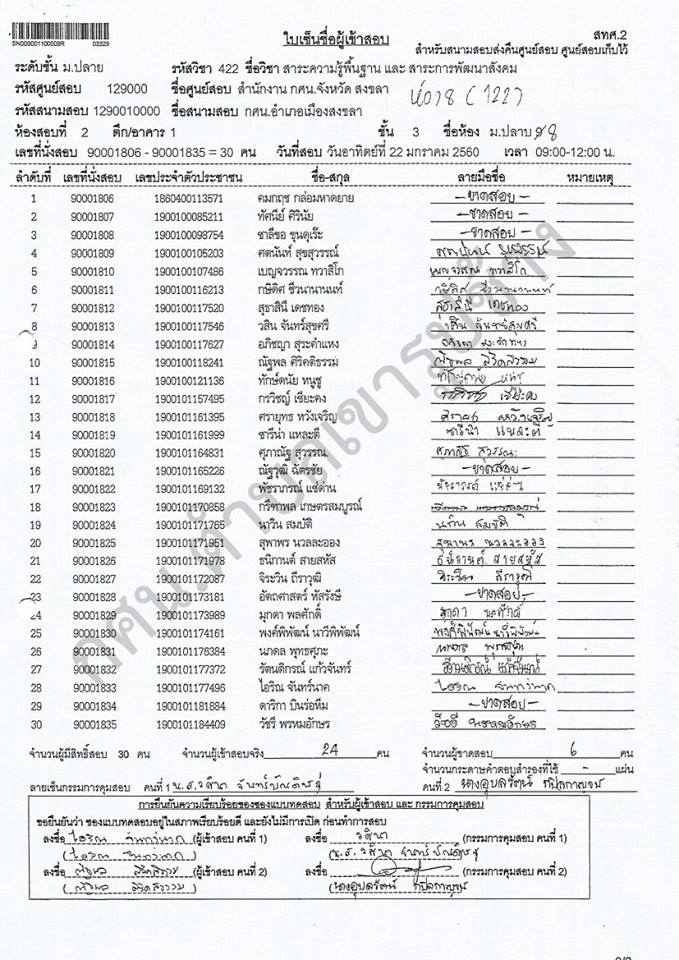 สทศ.2
ใบเซ็นชื่อผู้เข้าสอบ
SN009001100008R 03329
สำหรับสนามสอบส่งคืนศูนย์สอบ ศูนย์สอบเก็บไว้
ระดับชั้น ม.ปลาย รหัสวิชา 422 ชื่อวิชา สาระความรู้พื้นฐาน และ สาระการพัฒนาสังคม
รหัสศูนย์สอบ 129000 ชื่อศูนย์สอบ สำนักงาน กศน.จังหวัด สงขลา
รหัสสนามสอบ 1290010000 ชื่อสนามสอบ กศน.อำเภอเมืองสงขลา
ห้อง 8 (122)
ห้องสอบที่ 2 ตึก/อาคาร 1 ชั้น 3 ชื่อห้อง ม.ปลาย 8
เลขที่นั่งสอบ 90001806 - 90001835 = 30 คน วันที่สอบ วันอาทิตย์ที่ 22 มกราคม 2560 เวลา 09:00-12:00 น.
ลำดับที่ เลขที่นั่งสอบ เลขประจำตัวประชาชน ชื่อ-สกุล ลายมือชื่อ หมายเหตุ
1 90001806 1860400113571 คมกฤช กล่อมหาดยาย -ขาดสอบ-
2 90001807 1900100085211 ทัศนีย์ ศิรินัย -ขาดสอบ-
3 90001808 1900100098754 ซาลีซอ ขุนดุเร๊ะ -ขาดสอบ-
4 90001809 1900100105203 ศตนันท์ สุขสุวรรณ์
5 90001810 1900100107486 เบญจวรรณ ทวาสิโก
6 90001811 1900100116213 กษิดิศ ชีวนานนท์
7 90001812 1900100117520 สุธาสินี เดชทอง สุธาสินี เดชทอง
8 90001813 1900100117546 วสิน จันทร์สุขศรี วสิน จันทร์สุขศรี
9 90001814 1900100117627 อภิชญา สุระคำแหง
10 90001815 1900100118241 ณัฐพล ศิริคติธรรม
11 90001816 1900100121136 ทักษ์ดนัย หนูชู
12 90001817 1900101157495 กรวิชญ์ เซียะคง
13 90001818 1900101161395 ศรายุทธ หวังเจริญ
14 90001819 1900101161999 ซารีน่า แหละตี ซารีน่า แหละตี
15 90001820 1900101164831 ศุภาณัฐ สุวรรณ.
16 90001821 1900101165226 ณัฐวุฒิ ฉัตรชัย -ขาดสอบ-
17 90001822 1900101169132 พัชราภรณ์ แซ่ด่าน
18 90001823 1900101170858 กรีฑาพล เกษตรสมบูรณ์
19 90001824 1900101171765 นาวิน สมบัติ นาวิน สมบัติ
20 90001825 1900101171951 สุพาพร นวลละออง สุพาพร นวลละออง
21 90001826 1900101171978 ธนิกานต์ สายสหัส
22 90001827 1900101172087 จิระวิน ถีราวุฒิ
23 90001828 1900101173181 อัตถศาสตร์ หัสรังษี -ขาดสอบ-
24 90001829 1900101173989 มุกดา พลศักดิ์ มุกดา พลศักดิ์
25 90001830 1900101174161 พงค์พิพัฒน์ นาวีพิพัฒน์
26 90001831 1900101176384 นภดล พุทธศุภะ
27 90001832 1900101177372 รัตนติกรณ์ แก้วจันทร์
28 90001833 1900101177496 ไอริณ จันทร์นาค
29 90001834 1900101181884 ดาริกา บินร่อหีม -ขาดสอบ-
30 90001835 1900101184409 วัชรี พรหมอักษร
จำนวนผู้มีสิทธิ์สอบ 30 คน จำนวนผู้เข้าสอบจริง 24 คน จำนวนผู้ขาดสอบ 6 คน
จำนวนกระดาษคำตอบสำรองที่ใช้ - แผ่น
ลายเซ็นกรรมการคุมสอบ คนที่ 1 คนที่ 2
การยืนยันความเรียบร้อยของซองแบบทดสอบ สำหรับผู้เข้าสอบ และ กรรมการคุมสอบ
ขอยืนยันว่า ซองแบบทดสอบอยู่ในสภาพเรียบร้อยดี และยังไม่มีการเปิด ก่อนทำการสอบ
ลงชื่อ (ผู้เข้าสอบ คนที่ 1) ลงชื่อ (กรรมการคุมสอบ คนที่ 1)
ลงชื่อ (ผู้เข้าสอบ คนที่ 2) ลงชื่อ (กรรมการคุมสอบ คนที่ 2)
กศน.ตำบลเขารูปช้าง